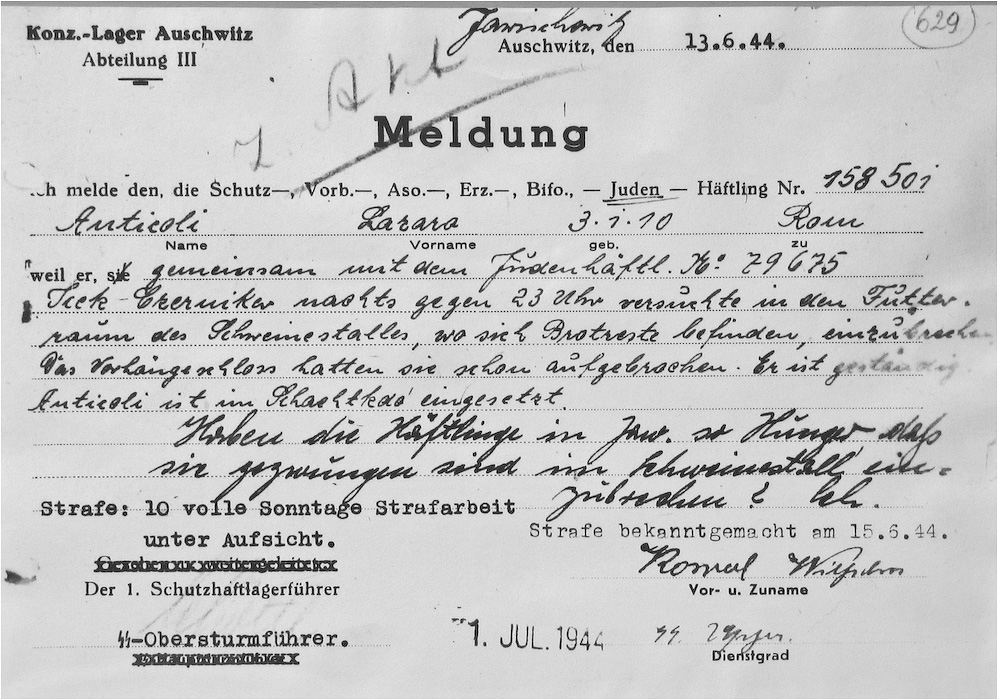 629
Jawischowitz
Konz.-Lager Auschwitz
Auschwitz, den 13.6.44.
Abteilung III
z Akt
Meldung
ch melde den, die Schutz—, Vorb.—, Aso.—, Erz.—, Bifo., — Juden — Häftling Nr. 158 501
Anticoli Lazaro 3.1.10 Rom
Name Vorname geb. zu
weil er, sie gemeinsam mit dem Judenhäftl. No: 79675
nachts gegen 23 Uhr versuchte in den Futter-
raum des Schweinestalles, wo sich Brotreste befinden, einzubrechen.
Das Vorhängeschloss hatten sie schon aufgebrochen. Er ist geständig.
Anticoli ist im Schachtkdo eingesetzt.
Haben die Häftlinge in Jaw. so Hunger daß
sie gezwungen sind im Schweinestall ein=
zubrechen?
Strafe: 10 volle Sonntage Strafarbeit
unter Aufsicht.
Strafe bekanntgemacht am 15.6.44.
Der 1. Schutzhaftlagerführer
Vor- u. Zuname
SS-Obersturmführer.
1. JUL. 1944
Dienstgrad